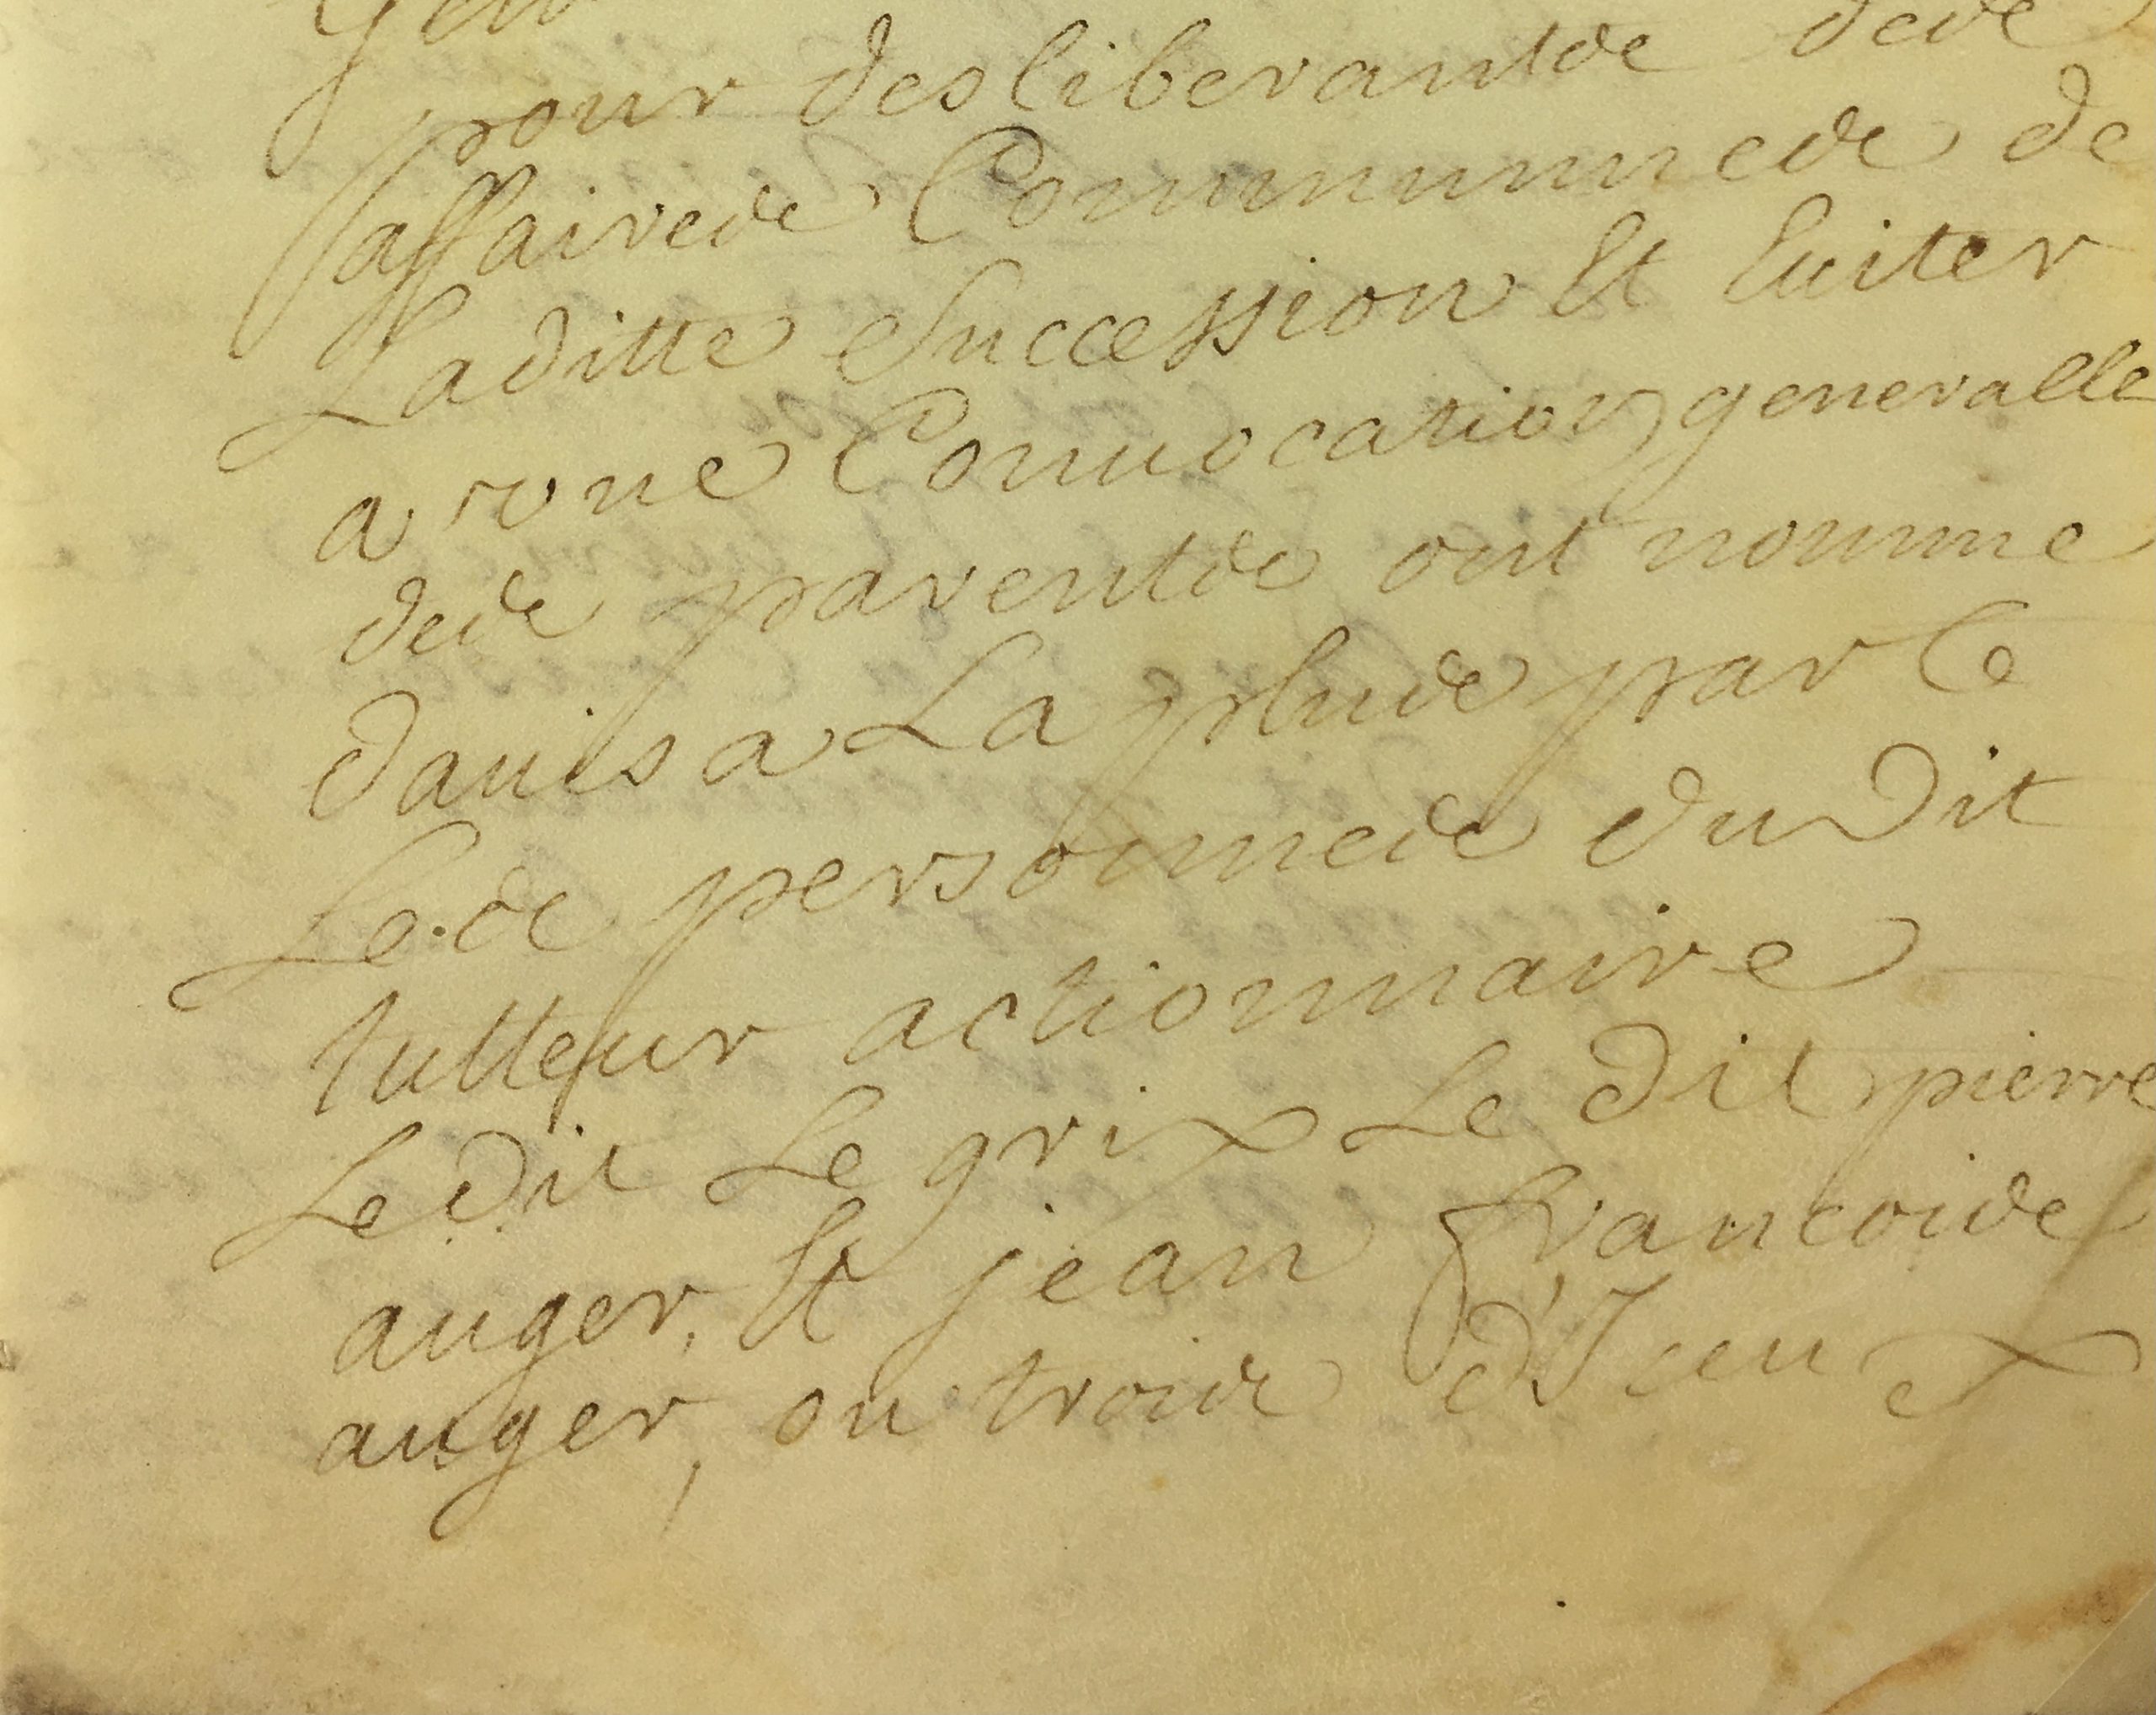 pour desliberants des
affaires Communes de
Laditte Succession Et Euiter
a vne Conuocation generalle
des parents ont nomme
dauis a La plus par Ce
Les personnes du Dit
tutteur actionnaire
Le Dit Le grix Le Dit pierre
auger, Et jean francois
auger, ou trois d'Iceux